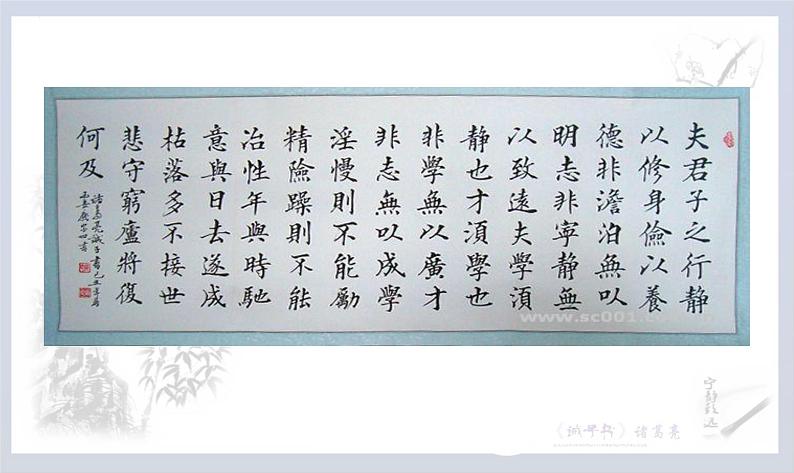 夫君子之行静
以修身儉以養
德非澹泊無以
明志非寧静無
以致遠夫學須
静也才須學也
非學無以廣才
非志無以成學
淫慢則不能勵
精險躁則不能
冶性年與時馳
意與日去遂成
枯落多不接世
悲守窮廬將復
何及
諸葛亮誡子書己丑年
www.sc001.com
宁静致远
《诫子书》诸葛亮